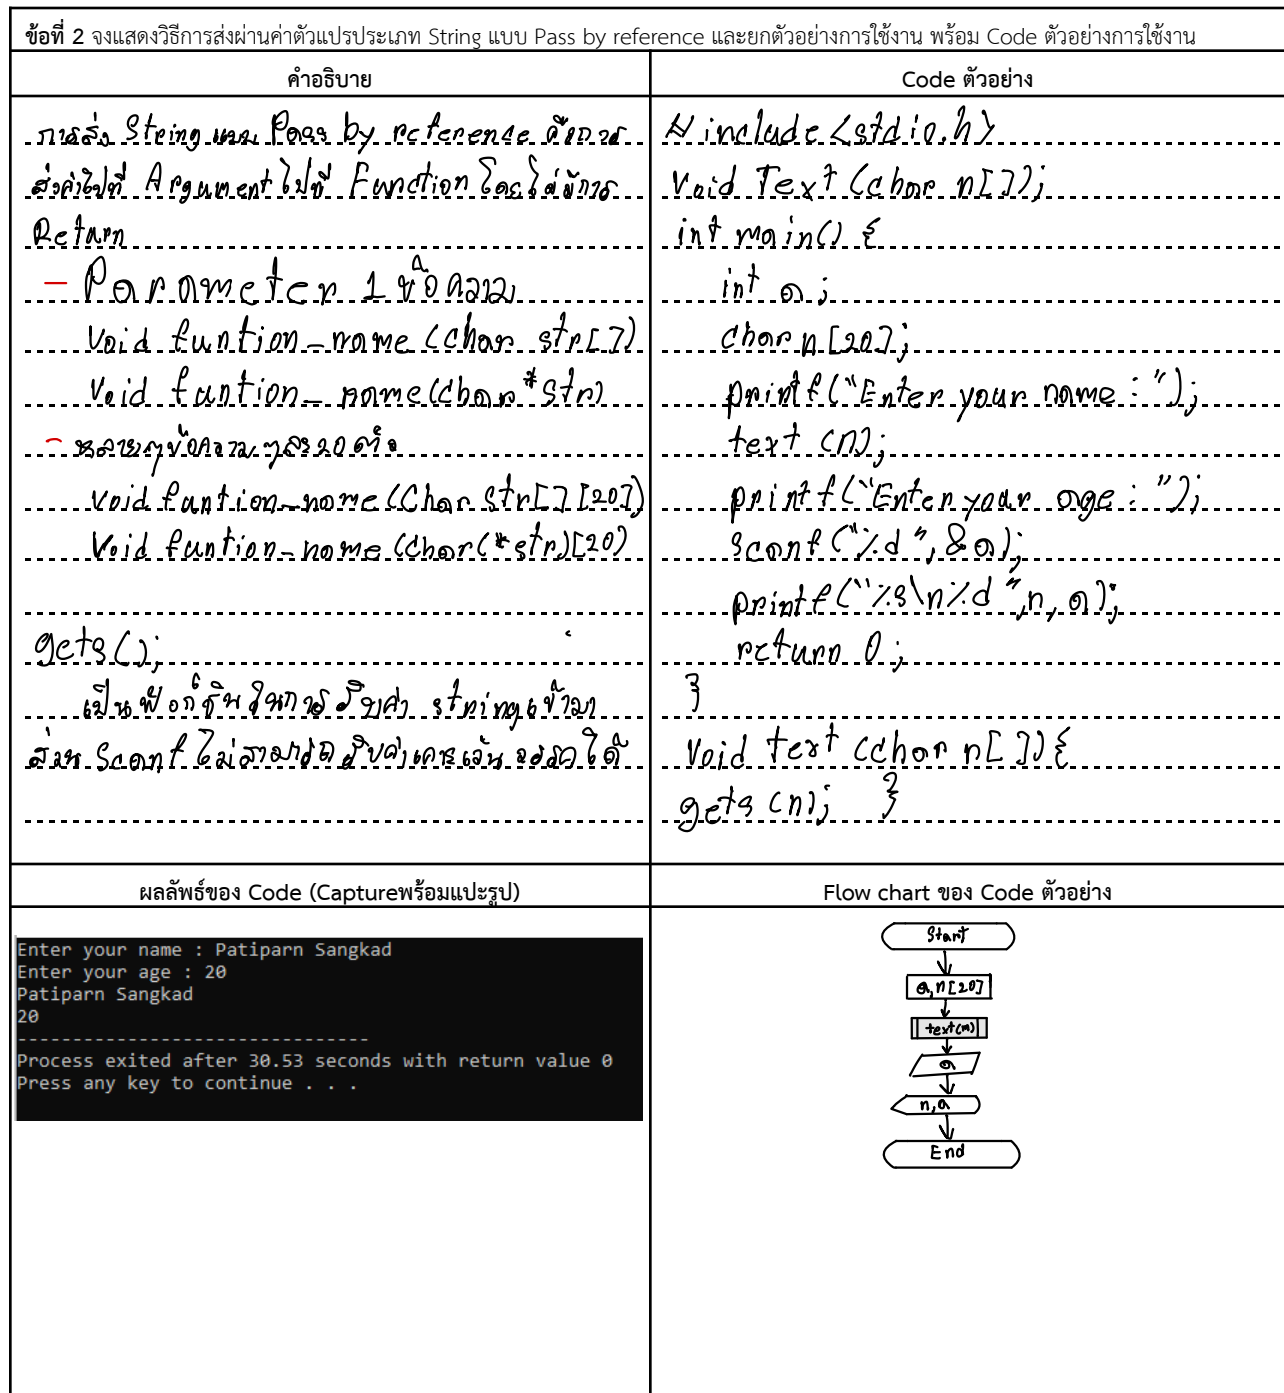 ข้อที่ 2 จงแสดงวิธีการส่งผ่านค่าตัวแปรประเภท String แบบ Pass by reference และยกตัวอย่างการใช้งาน พร้อม Code ตัวอย่างการใช้งาน
คำอธิบาย
การส่ง String แบบ Pass by reference คือการ
ส่งค่าไปที่ Argument ไปที่ Function โดยไม่มีการ
Return
- Parameter 1 ข้อความ
void funtion_name (char str[])
void funtion_name (char *str)
- หลายๆข้อความ ๆละ 20 ตัว
void funtion_name (char str[][20])
void funtion_name (char (*str)[20)
gets();
เป็นฟังก์ชันในการรับค่า string เข้ามา
ส่วน Scanf ไม่สามารถรับค่าเคาะเว้นวรรคได้
Code ตัวอย่าง
#include <stdio.h>
void Text (char n[]);
int main() {
int a;
char n[20];
printf("Enter your name : ");
text (n);
printf("Enter your age : ");
scanf ("%d", &a);
printf("%s\n%d", n, a);
return 0;
}
void text (char n[]) {
gets (n); }
ผลลัพธ์ของ Code (Captureพร้อมแปะรูป)
Enter your name : Patiparn Sangkad
Enter your age : 20
Patiparn Sangkad
20
--------------------------------
Process exited after 30.53 seconds with return value 0
Press any key to continue . . .
Flow chart ของ Code ตัวอย่าง
Start
a, n[20]
text(n)
a
n, a
End